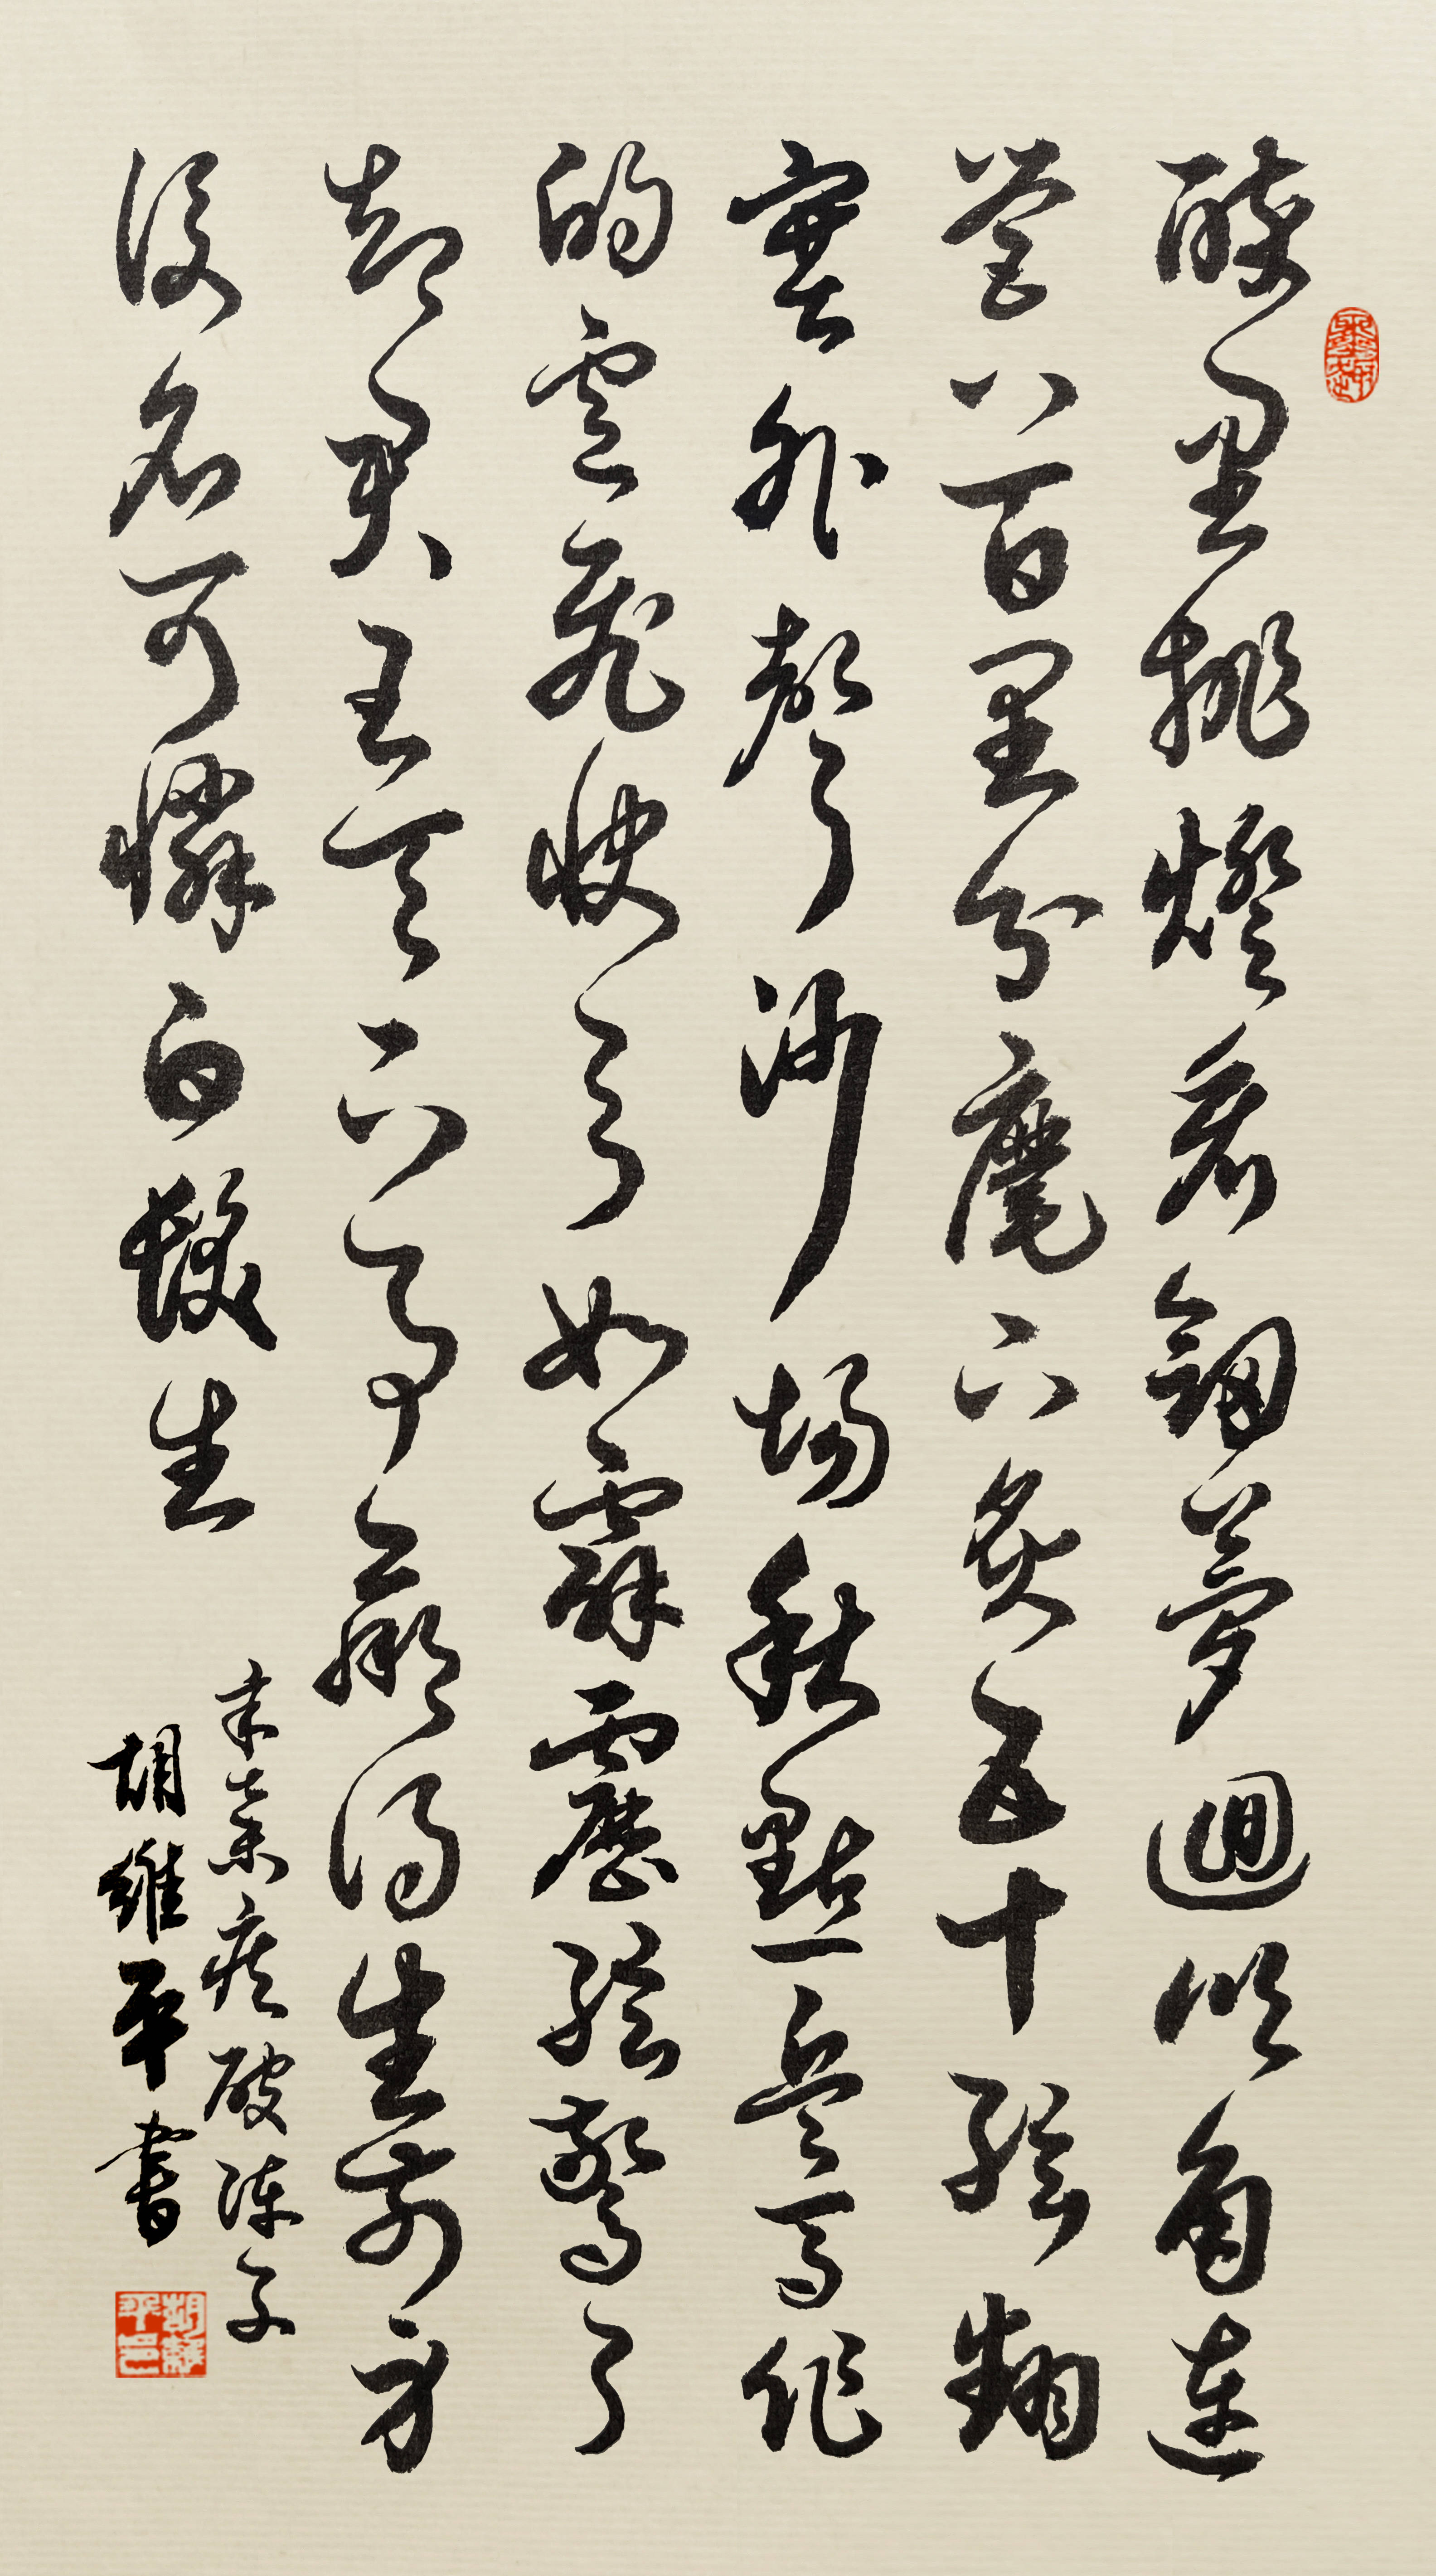 醉里挑燈看劍夢迴吹角連
營八百里分麾下炙五十絃翻
塞外聲沙場秋點兵馬作
的盧飛快弓如霹靂絃驚了
却君王天下事贏得生前身
後名可憐白髮生
辛棄疾破陣子
胡維平書
胡維平印